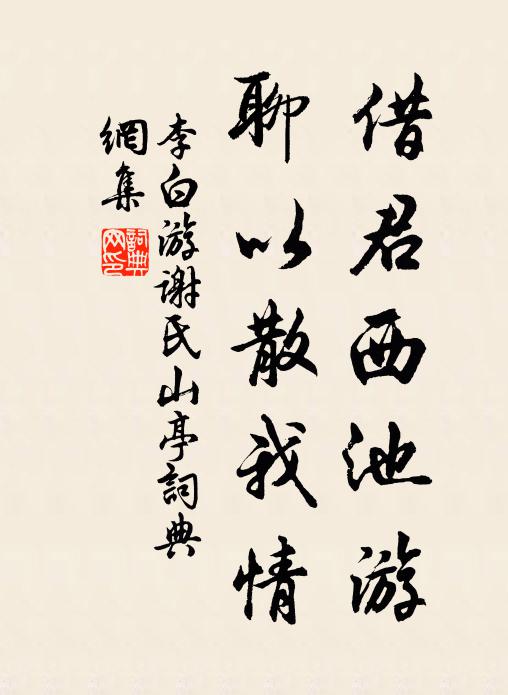 借君西池游
聊以散我情
李白游谢氏山亭詞典
網集
詞典
网印